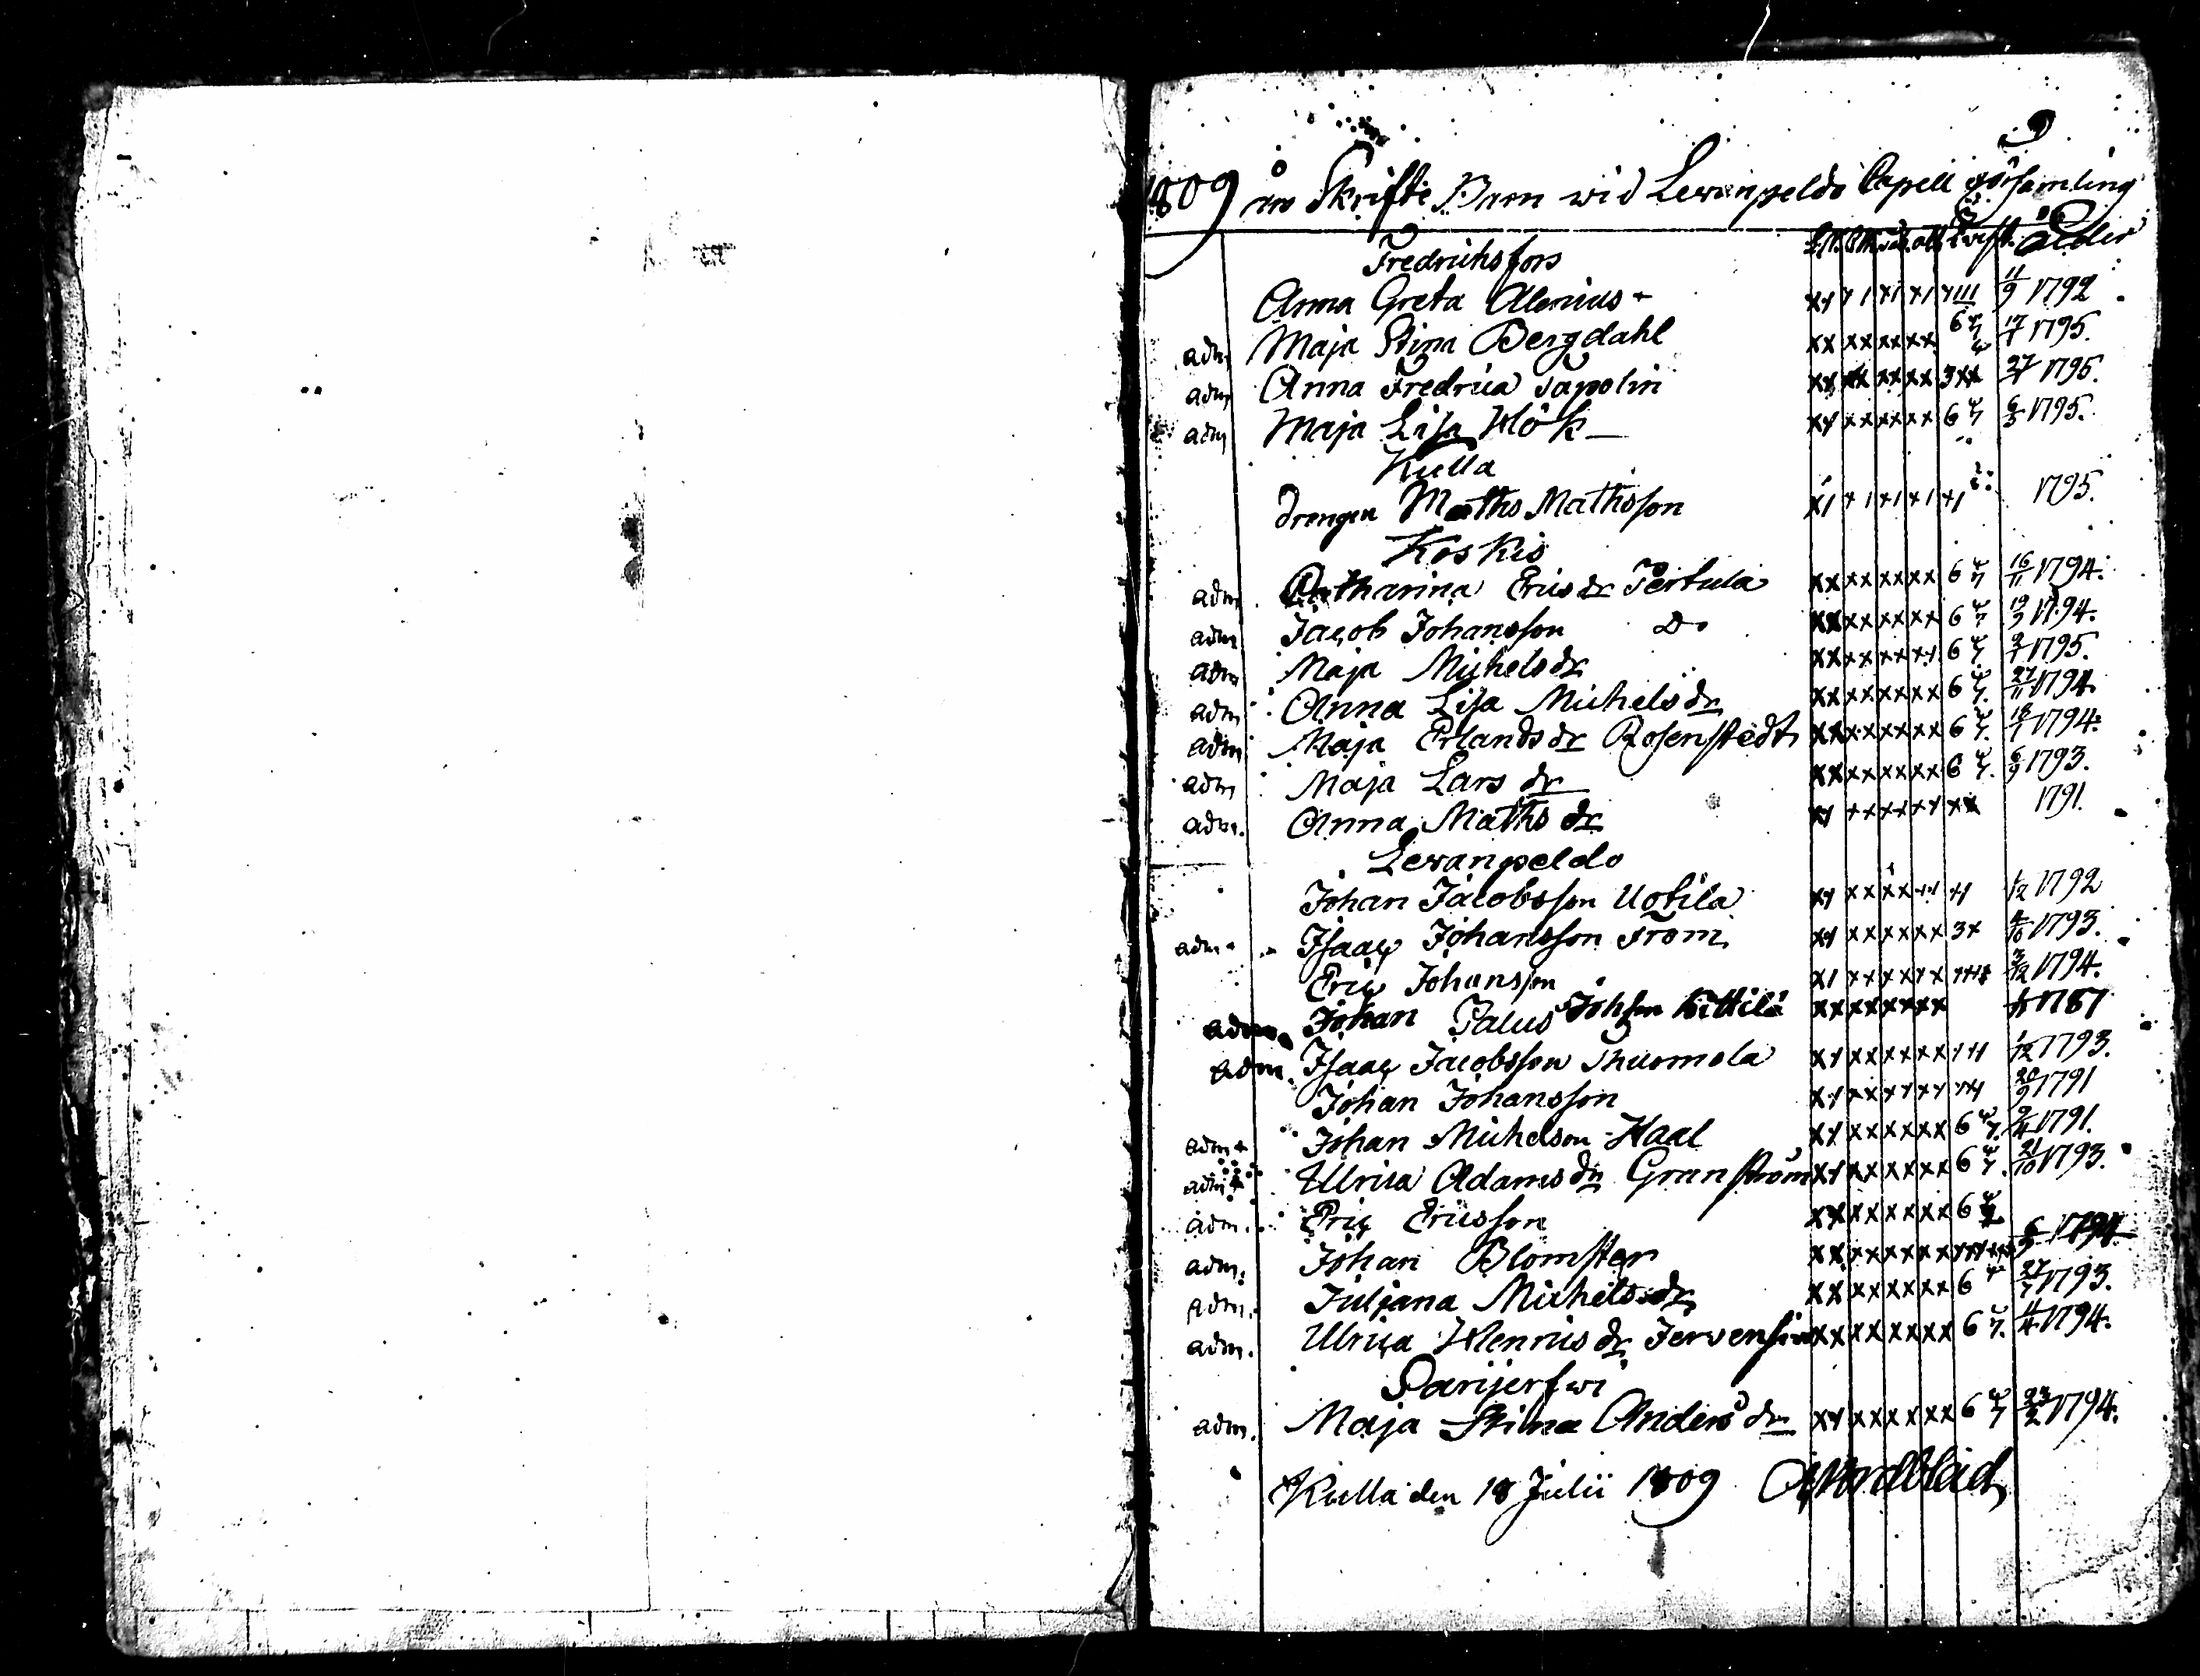 1809 års Skrifte Barn wid Lewanpeldo Capell församling
Fredrichsfors Ålder
Anna Greta Alenius + 11/9 1792
adm Maja Stina Bergdahl xx xx xx xx 6 17/1 1795.
adm Anna Fredrica Tapolin xx xx xx xx 3xx 27/1 1795.
adm Maja Lisa Höök xx xx xx xx 6 6/3 1795.
Kulla
Drengen Maths Mathsson x1 x1 x1 x1 x1 1795.
Koskis
adm. Catharina Erics dr Pertula xx xx xx xx 6 16/11 1794.
adm. Jacob Johansson Do xx xx xx xx 6 19/9 1794.
adm Maja Michels dr xx xx xx xx 6 2/1 1795.
adm Anna Lisa Michels dr xx xx xx xx 6 27/11 1794
adm Maja Erlands dr Rosenstedt xx xx xx xx 6 18/1 1794.
adm Maja Lars dr xx xx xx xx 6 6/9 1793.
adm. Anna Maths dr xx xx xx xx xx 1791.
Lewanpeldo
Johan Jacobsson Uotila 1/12 1792
adm Isaac Johansson From xx xx xx xx 3x 4/10 1793.
Eric Johansson 3/12 1794.
adm. Johan Palus Johsson Kittilä xx xx xx xx 1787
adm. Isaac Jacobsson Thuomola 1/12 1793.
Johan Johansson 20/9 1791
adm Johan Michelson Haal xx xx xx xx 6 9/4 1791.
adm Ulrica Adams dr Granström xx xx xx xx 6 21/10 1793.
adm. Eric Ericsson xx xx xx xx 6
adm. Johan Blomster xx xx xx xx 6/9 1794
adm. Juljana Michels dr xx xx xx xx 6 27/7 1793.
adm. Ulrica Henrics dr Jervensiu xx xx xx xx 6 11/4 1794.
Parijerfwi
adm. Maja Stina Anders dr xx xx xx xx 6 23/2 1794.
Kulla den 18 Julii 1809 Nordblad